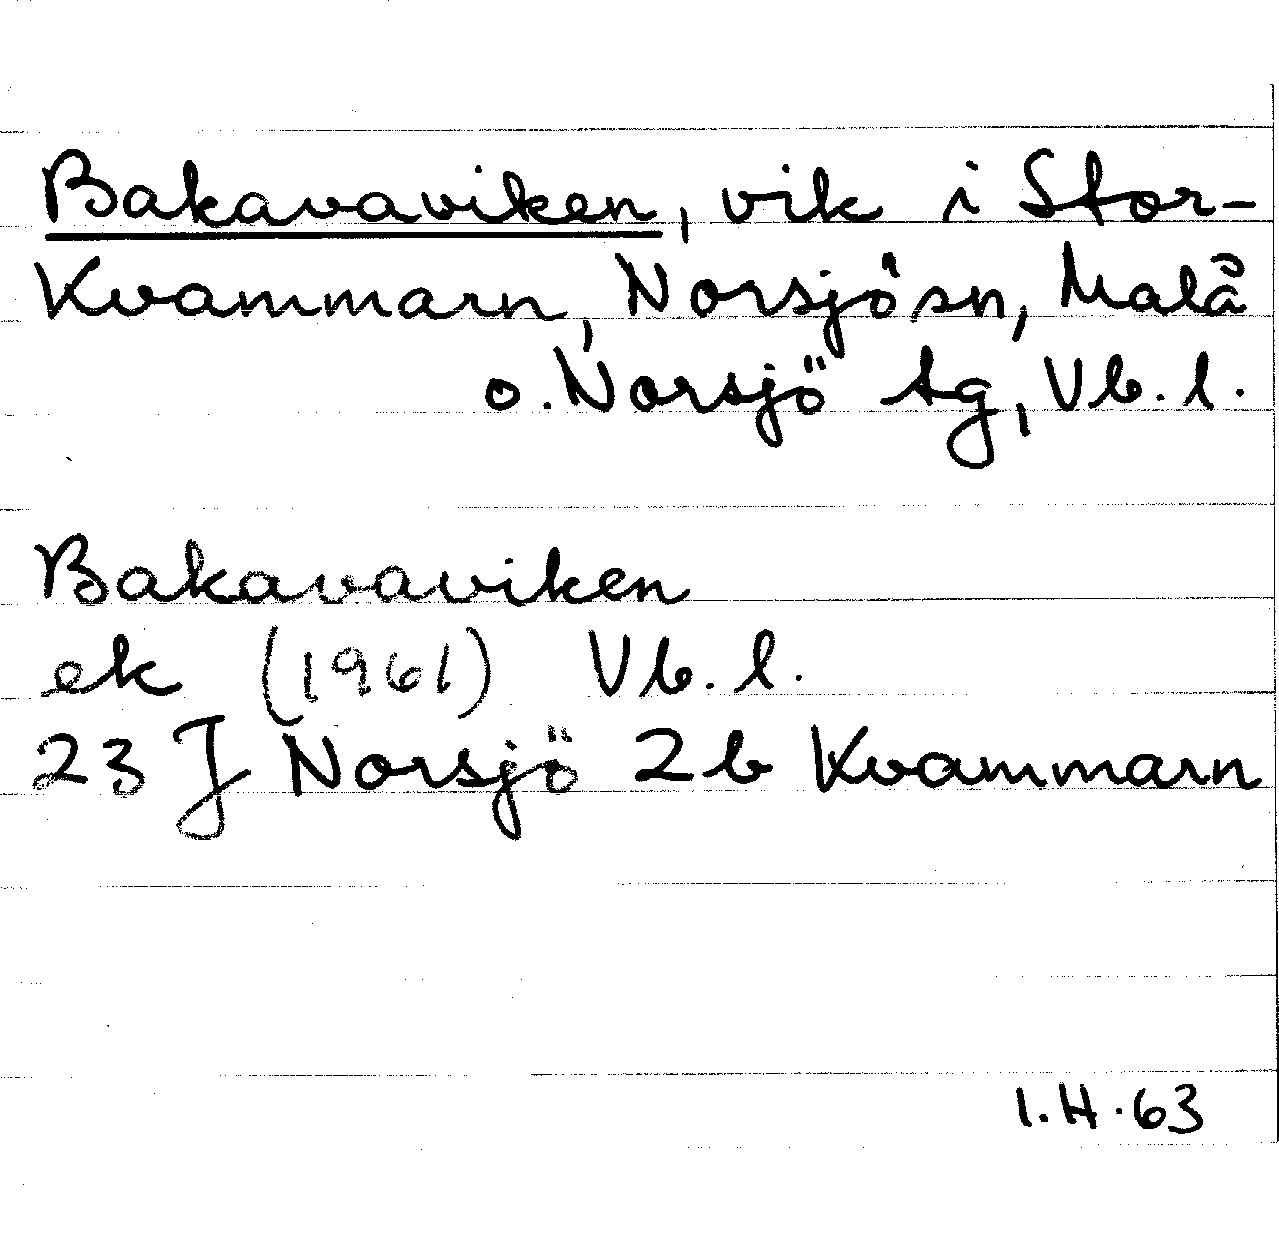 Bakavaviken, vik i Stor-
Kvammarn, Norsjö sn, Malå
o. Norsjö tg, Vb. l.
Bakavaviken
ek (1961) Vb. l.
23 J Norsjö 2b Kvammarn
I.H.63